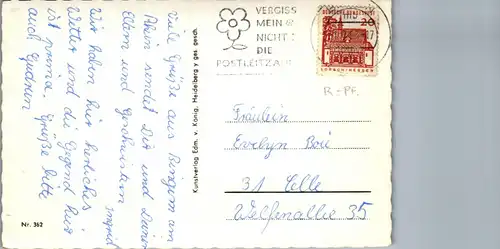 viele Grüße aus Bingen am
Rhein sendet Dir und Deinen
Eltern und Geschwistern
Ingrid
Wir haben hier herrliches
Wetter und die Gegend hier
ist prima. Grüße bitte
auch Gudrun
Nr. 362
Kunstverlag Edm. v. König, Heidelberg ges. gesch.
VERGISS
MEIN
NICHT
DIE
POSTLEITZAHL
DEUTSCHE BUNDESPOST
20
LORSCH/HESSEN
R.-PF.
Fräulein
Evelyn
31 Celle
Welfenallee 35